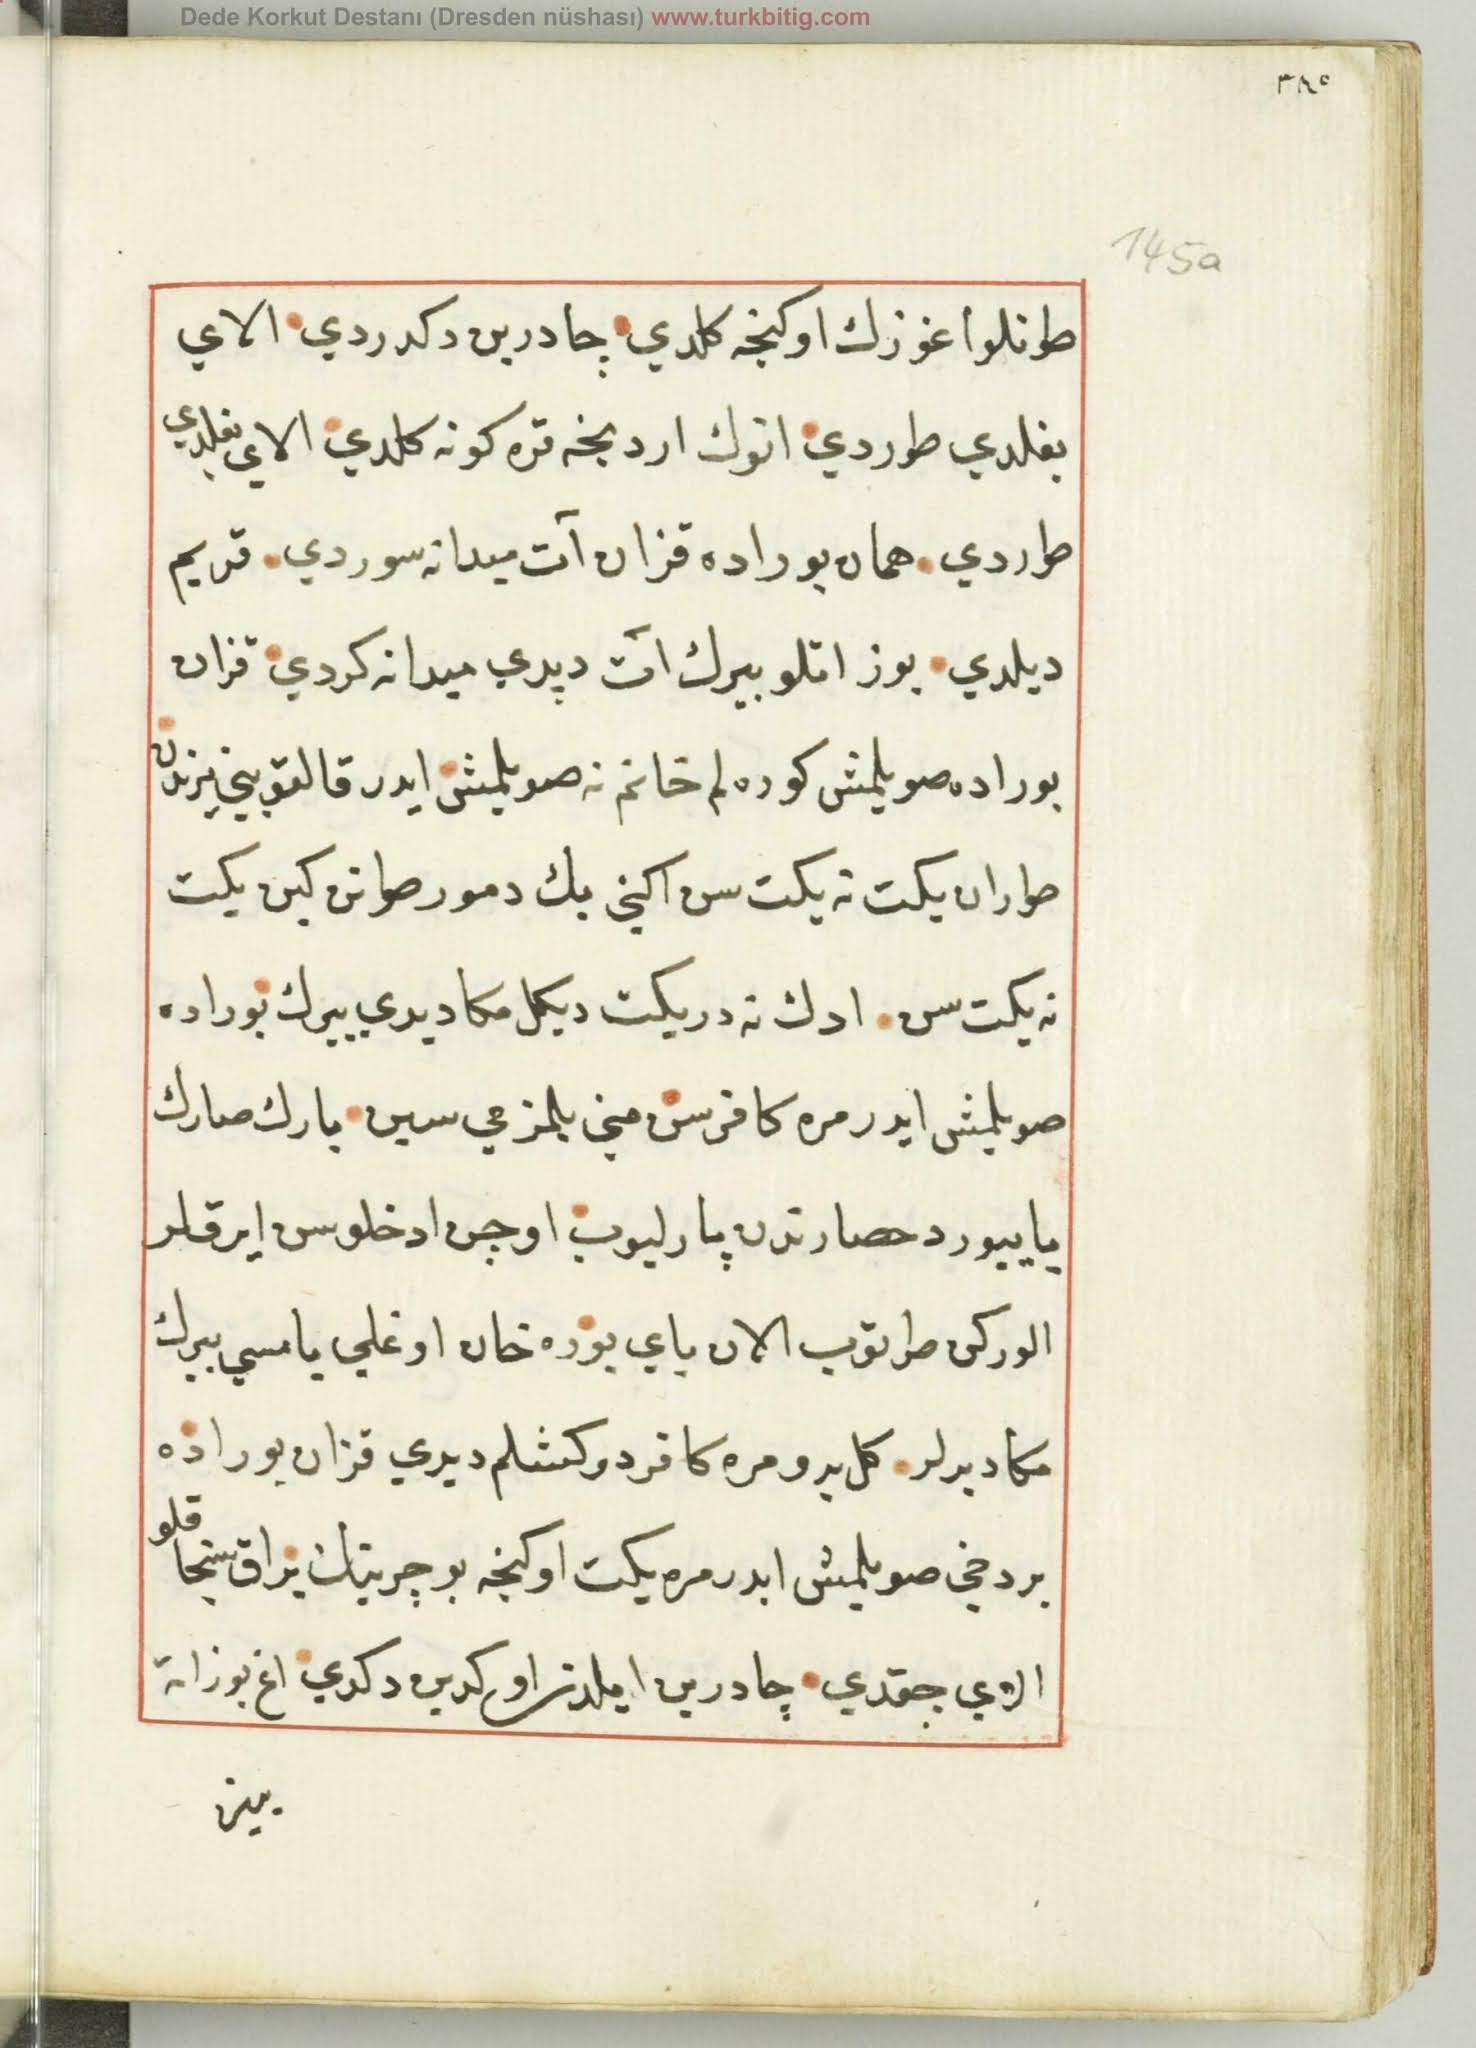 Dede Korkut Destanı (Dresden nüshası) www.turkbitig.com
٢٨٥
145a
طونلو اغوزك اوكنجه كلدي چادرين دكدردي الاي
بغلدي طوردي انوك اردنجه قره كونه كلدي الاي بغلدي
طوردي همان بوراده قزان آت ميدانه سوردي قريم
ديلدي بوز اتلو بيرك آت دپدي ميدانه كردي قزان
بوراده صويلمش كوره لم خانم نه صويلمش ايدر قالقوبني يرندن
طوران يكت نه يكت سن اكني بك دمور طونن كين يكت
نه يكت سن ادك نه در يكت ديكل مكا ديدي بيرك بوراده
صويلمش ايدر مره كافر سن مني بلمز مي سين پارك صارك
پاييبورد حصارندن پارليوب اوچن ادخلوسن ايرقلر
الوركن طوتوب الان باي بوره خان اوغلي بامسي بيرك
مكا ديرلر كل برو مره كافر دوكشلم ديدي قزان بوراده
بر دخي صويلمش ايدر مره يكت اوكنجه بو چرينك براق سنجاقلو
الاي چقدي چادرين ايلدن اوكدين دكدي اغ بوز اته
بينن